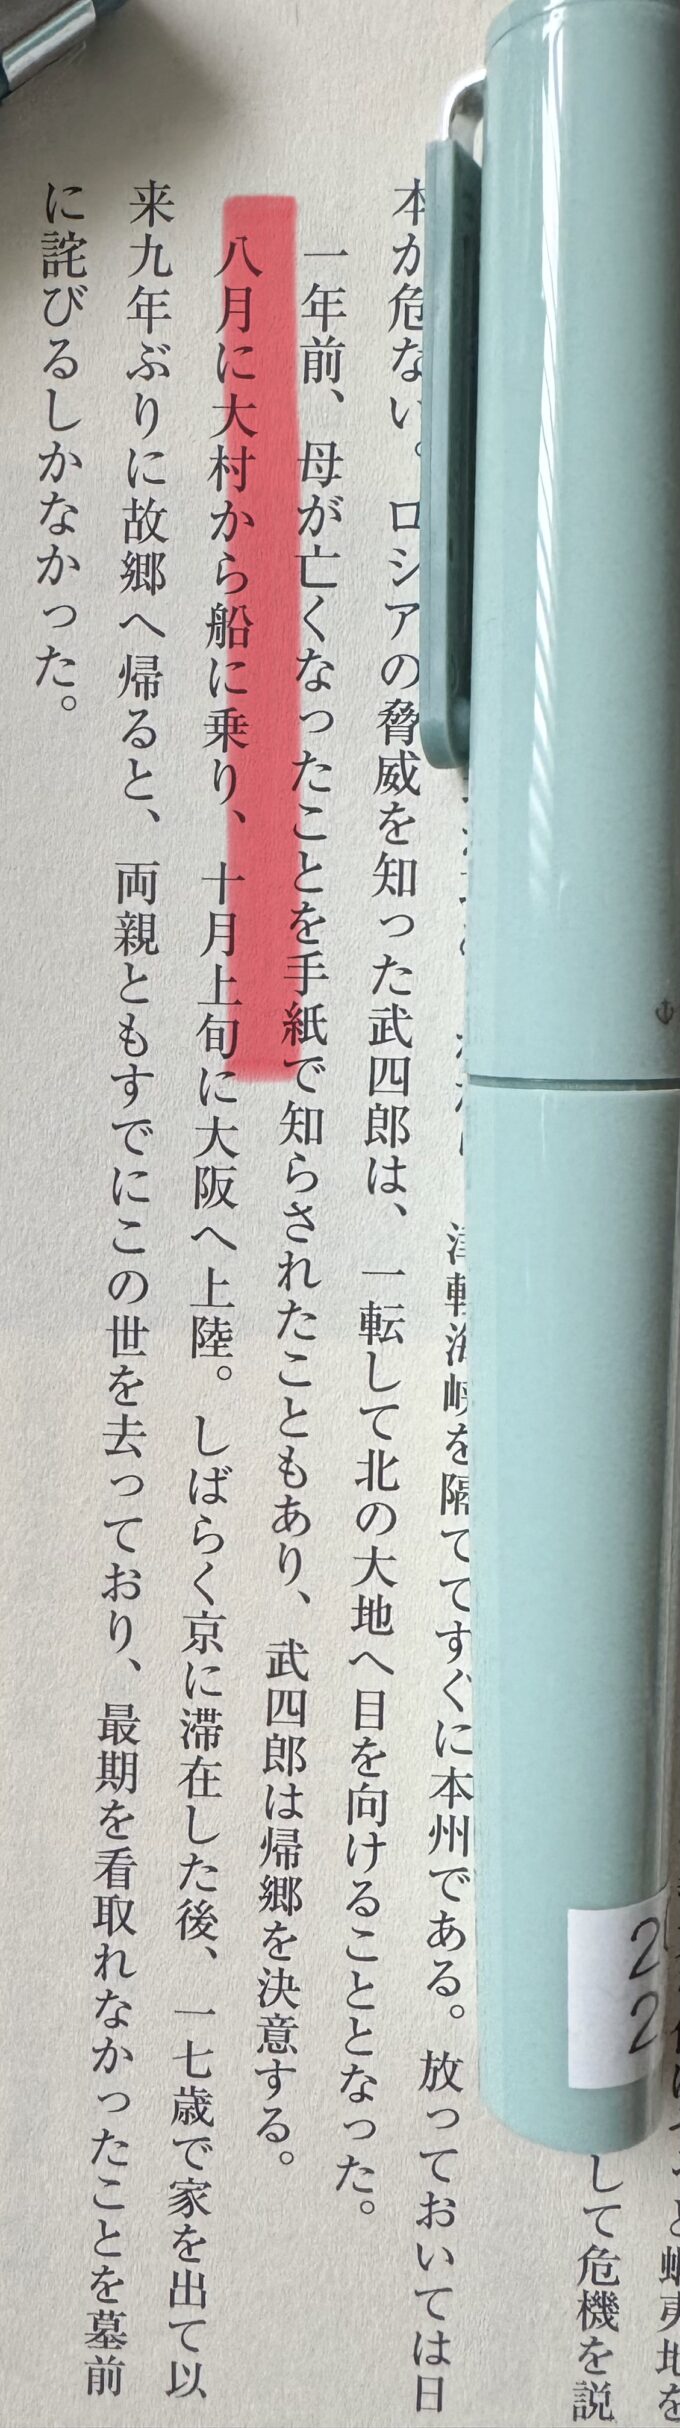 して危機を説
津軽海峡を隔ててすぐに本州である。放っておいては日
本が危ない。ロシアの脅威を知った武四郎は、一転して北の大地へ目を向けることとなった。
一年前、母が亡くなったことを手紙で知らされたこともあり、武四郎は帰郷を決意する。
八月に大村から船に乗り、十月上旬に大阪へ上陸。しばらく京に滞在した後、一七歳で家を出て以
来九年ぶりに故郷へ帰ると、両親ともすでにこの世を去っており、最期を看取れなかったことを墓前
に詫びるしかなかった。
2
2